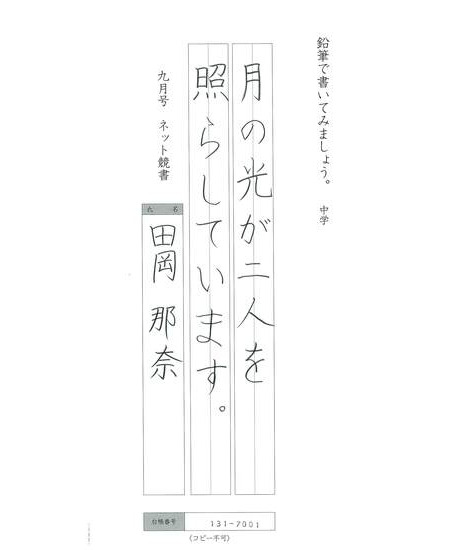 鉛筆で書いてみましょう。 中学
月の光が二人を
照らしています。
九月号 ネット競書
氏名
田岡 那奈
台帳番号 131-7001
(コピー不可)